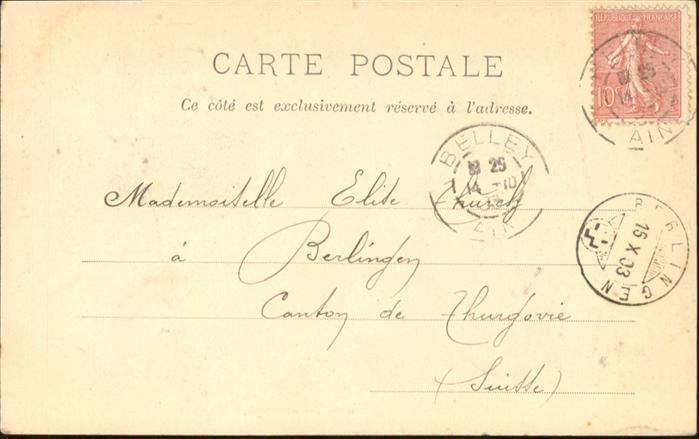 RÉPUBLIQUE FRANÇAISE
10
CARTE POSTALE
Ce côté est exclusivement réservé à l'adresse.
BELLEY
25
14 -10
AIN
BELLEY
25
14
AIN
Mademoiselle Elise
à Berlingen
Canton de Thurgovie
(Suisse)
BERLINGEN
15 X 03